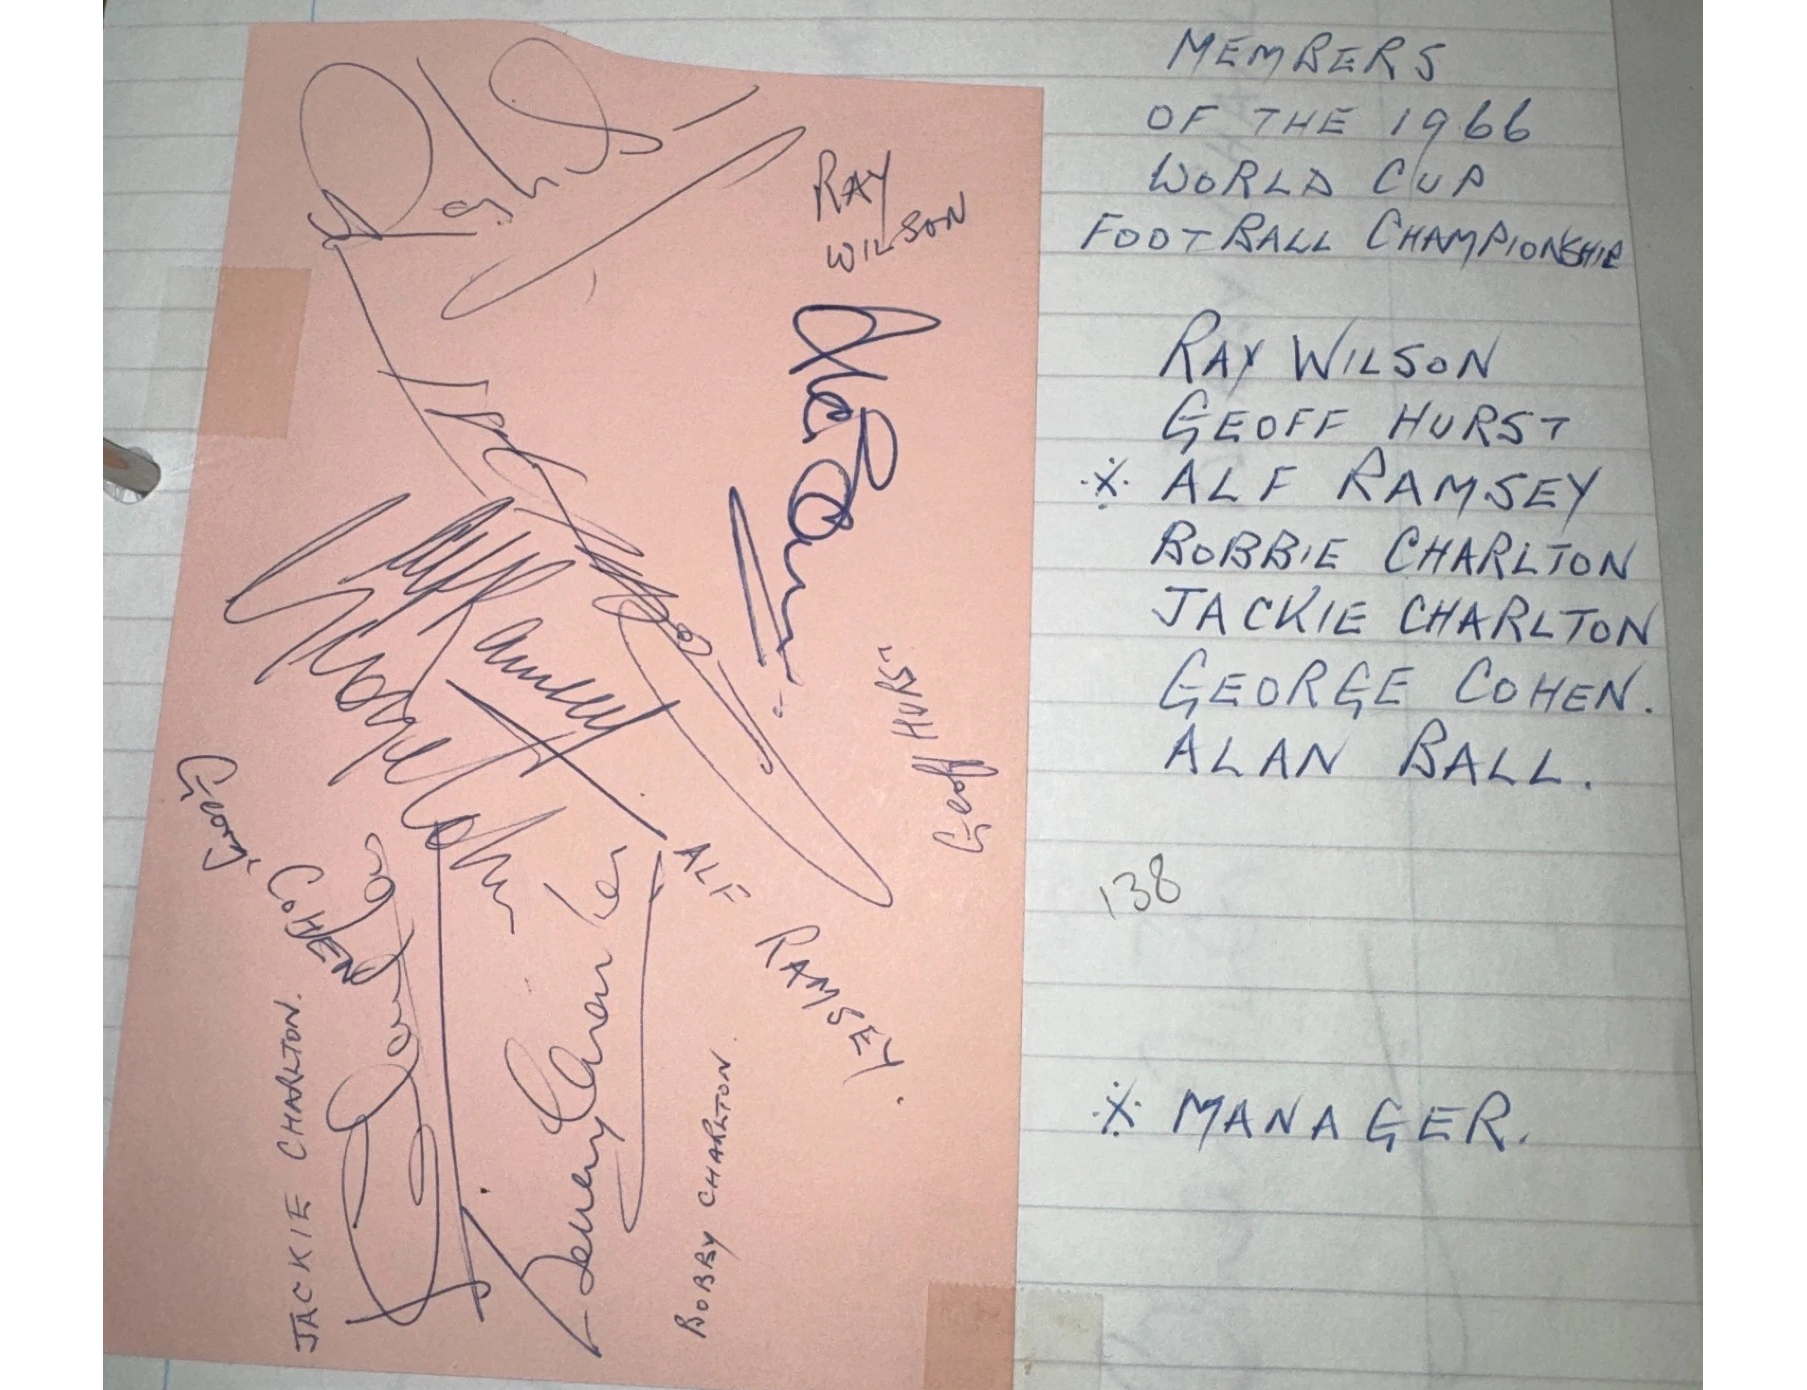 RAY
WILSON
Geoff HURST
ALF
RAMSEY.
George
COHEN
JACKIE CHARLTON.
BOBBY CHARLTON.
MEMBERS
OF THE 1966
WORLD CUP
FOOTBALL CHAMPIONSHIP
RAY WILSON
GEOFF HURST
※ ALF RAMSEY
BOBBIE CHARLTON
JACKIE CHARLTON
GEORGE COHEN.
ALAN BALL.
138
※ MANAGER.